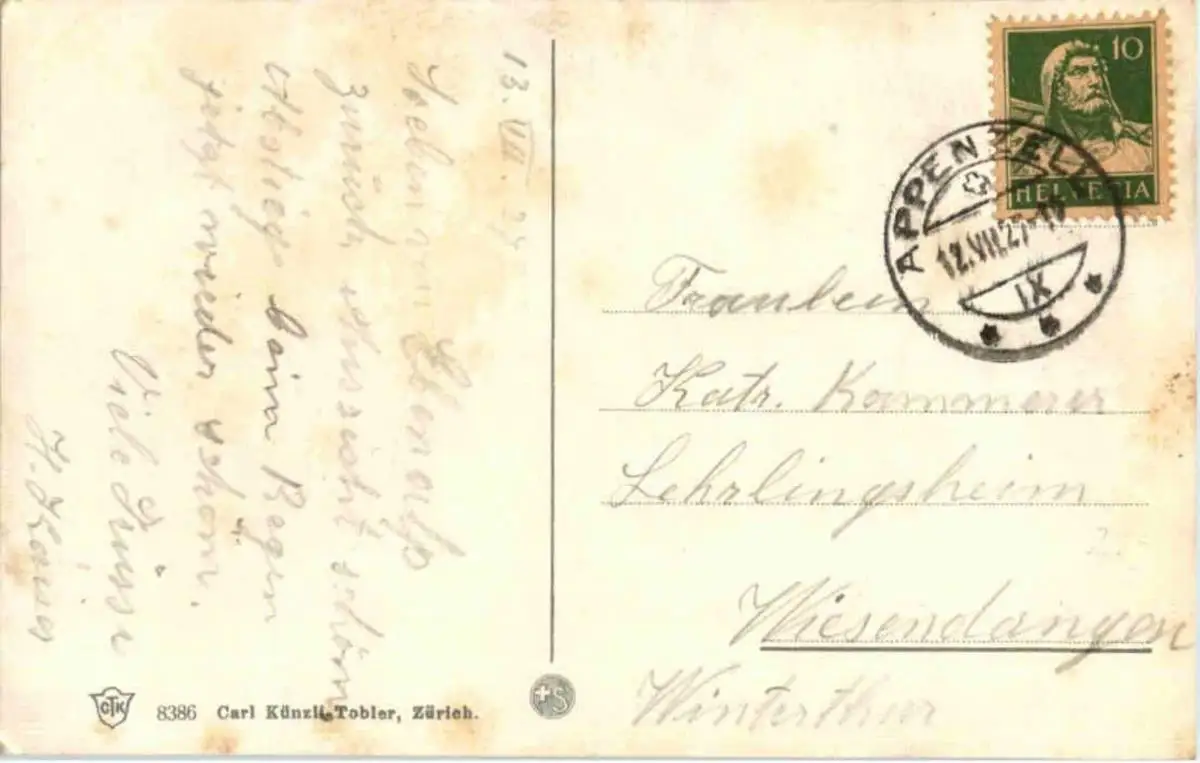 13. VII. 27
Soeben von Ebenalp
zurück Aussicht schön
Abstieg beim Regen
jetzt wieder schön.
Viele Grüsse
10
HELVETIA
APPENZELL
12.VII.27
IX
Fräulein
Katr. Kammerer
Lehrlingsheim
Wiesendangen
Winterthur
CTK
8386 Carl Künzli-Tobler, Zürich.
S